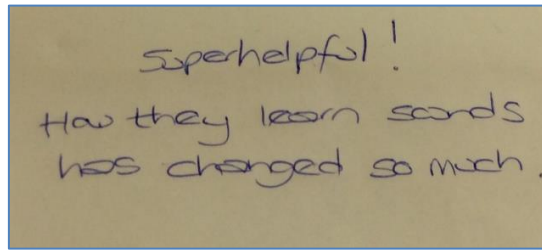 Superhelpful!
How they learn sounds
has changed so much.